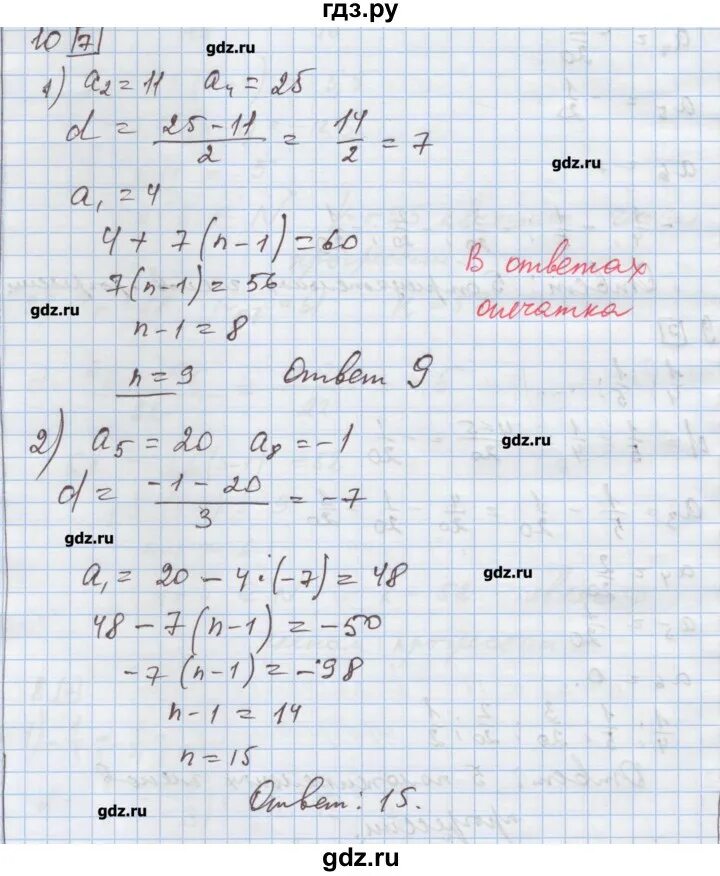 гдз.ру
10 [7]
gdz.ru
1) a₂ = 11 a₄ = 25
d = (25 - 11)/2 = 14/2 = 7
gdz.ru
a₁ = 4
4 + 7(n-1) = 60
В ответах
7(n-1) = 56
опечатка
gdz.ru
n - 1 = 8
n = 9 Ответ 9
2) a₅ = 20 a₈ = -1
gdz.ru
d = (-1 - 20)/3 = -7
gdz.ru
a₁ = 20 - 4·(-7) = 48
gdz.ru
48 - 7(n-1) = -50
-7(n-1) = -98
n-1 = 14
n = 15
Ответ: 15.
gdz.ru
gdz.ru